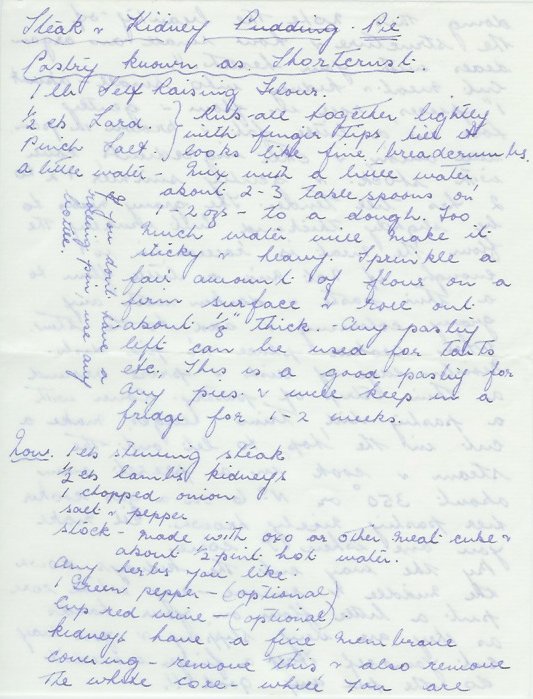 Steak & Kidney Pudding. Pie
Pastry known as Shortcrust.
1 lb Self Raising Flour.
½ lb Lard. } Rub all together lightly
Pinch Salt. } with finger tips till it
looks like fine breadcrumbs.
a little water - Mix with a little water
about 2-3 table spoons on
1-2 ozs - to a dough. Too
much water will make it
sticky & heavy. Sprinkle a
fair amount of flour on a
firm surface & roll out
about ⅛" thick. - Any pastry
left can be used for tarts
etc. This is a good pastry for
any pies. & will keep in a
fridge for 1-2 weeks.
If you don't have a
rolling pin, use any
bottle.
Now. 1 lb stewing steak
½ lb lambs kidneys
1 chopped onion
salt & pepper
stock - made with oxo or other meat cube &
about ½ pint hot water.
Any herbs you like.
1 Green pepper - (optional)
1 cup red wine - (optional).
Kidneys have a fine membrane
covering - remove this & also remove
the white core - while you are